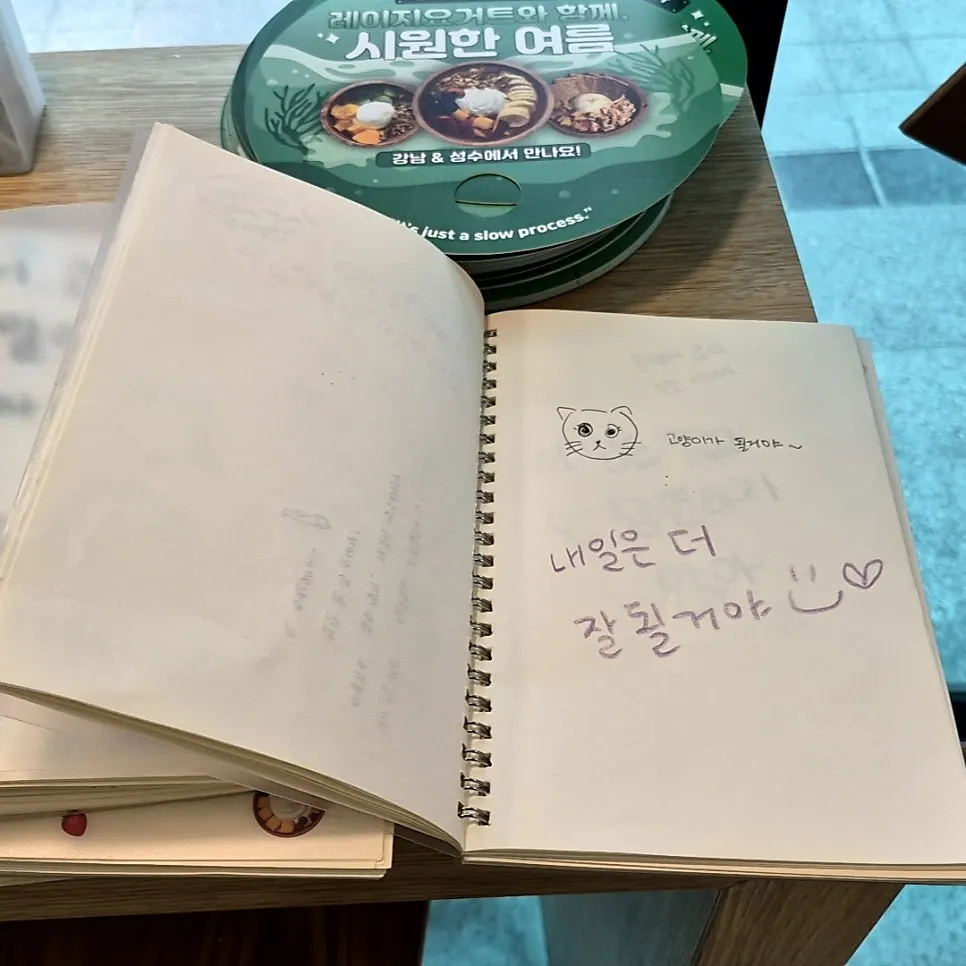 레이지요거트와 함께,
시원한 여름
강남 & 성수에서 만나요!
just a slow process."
고양이가 될거야~
내일은 더
잘 될거야